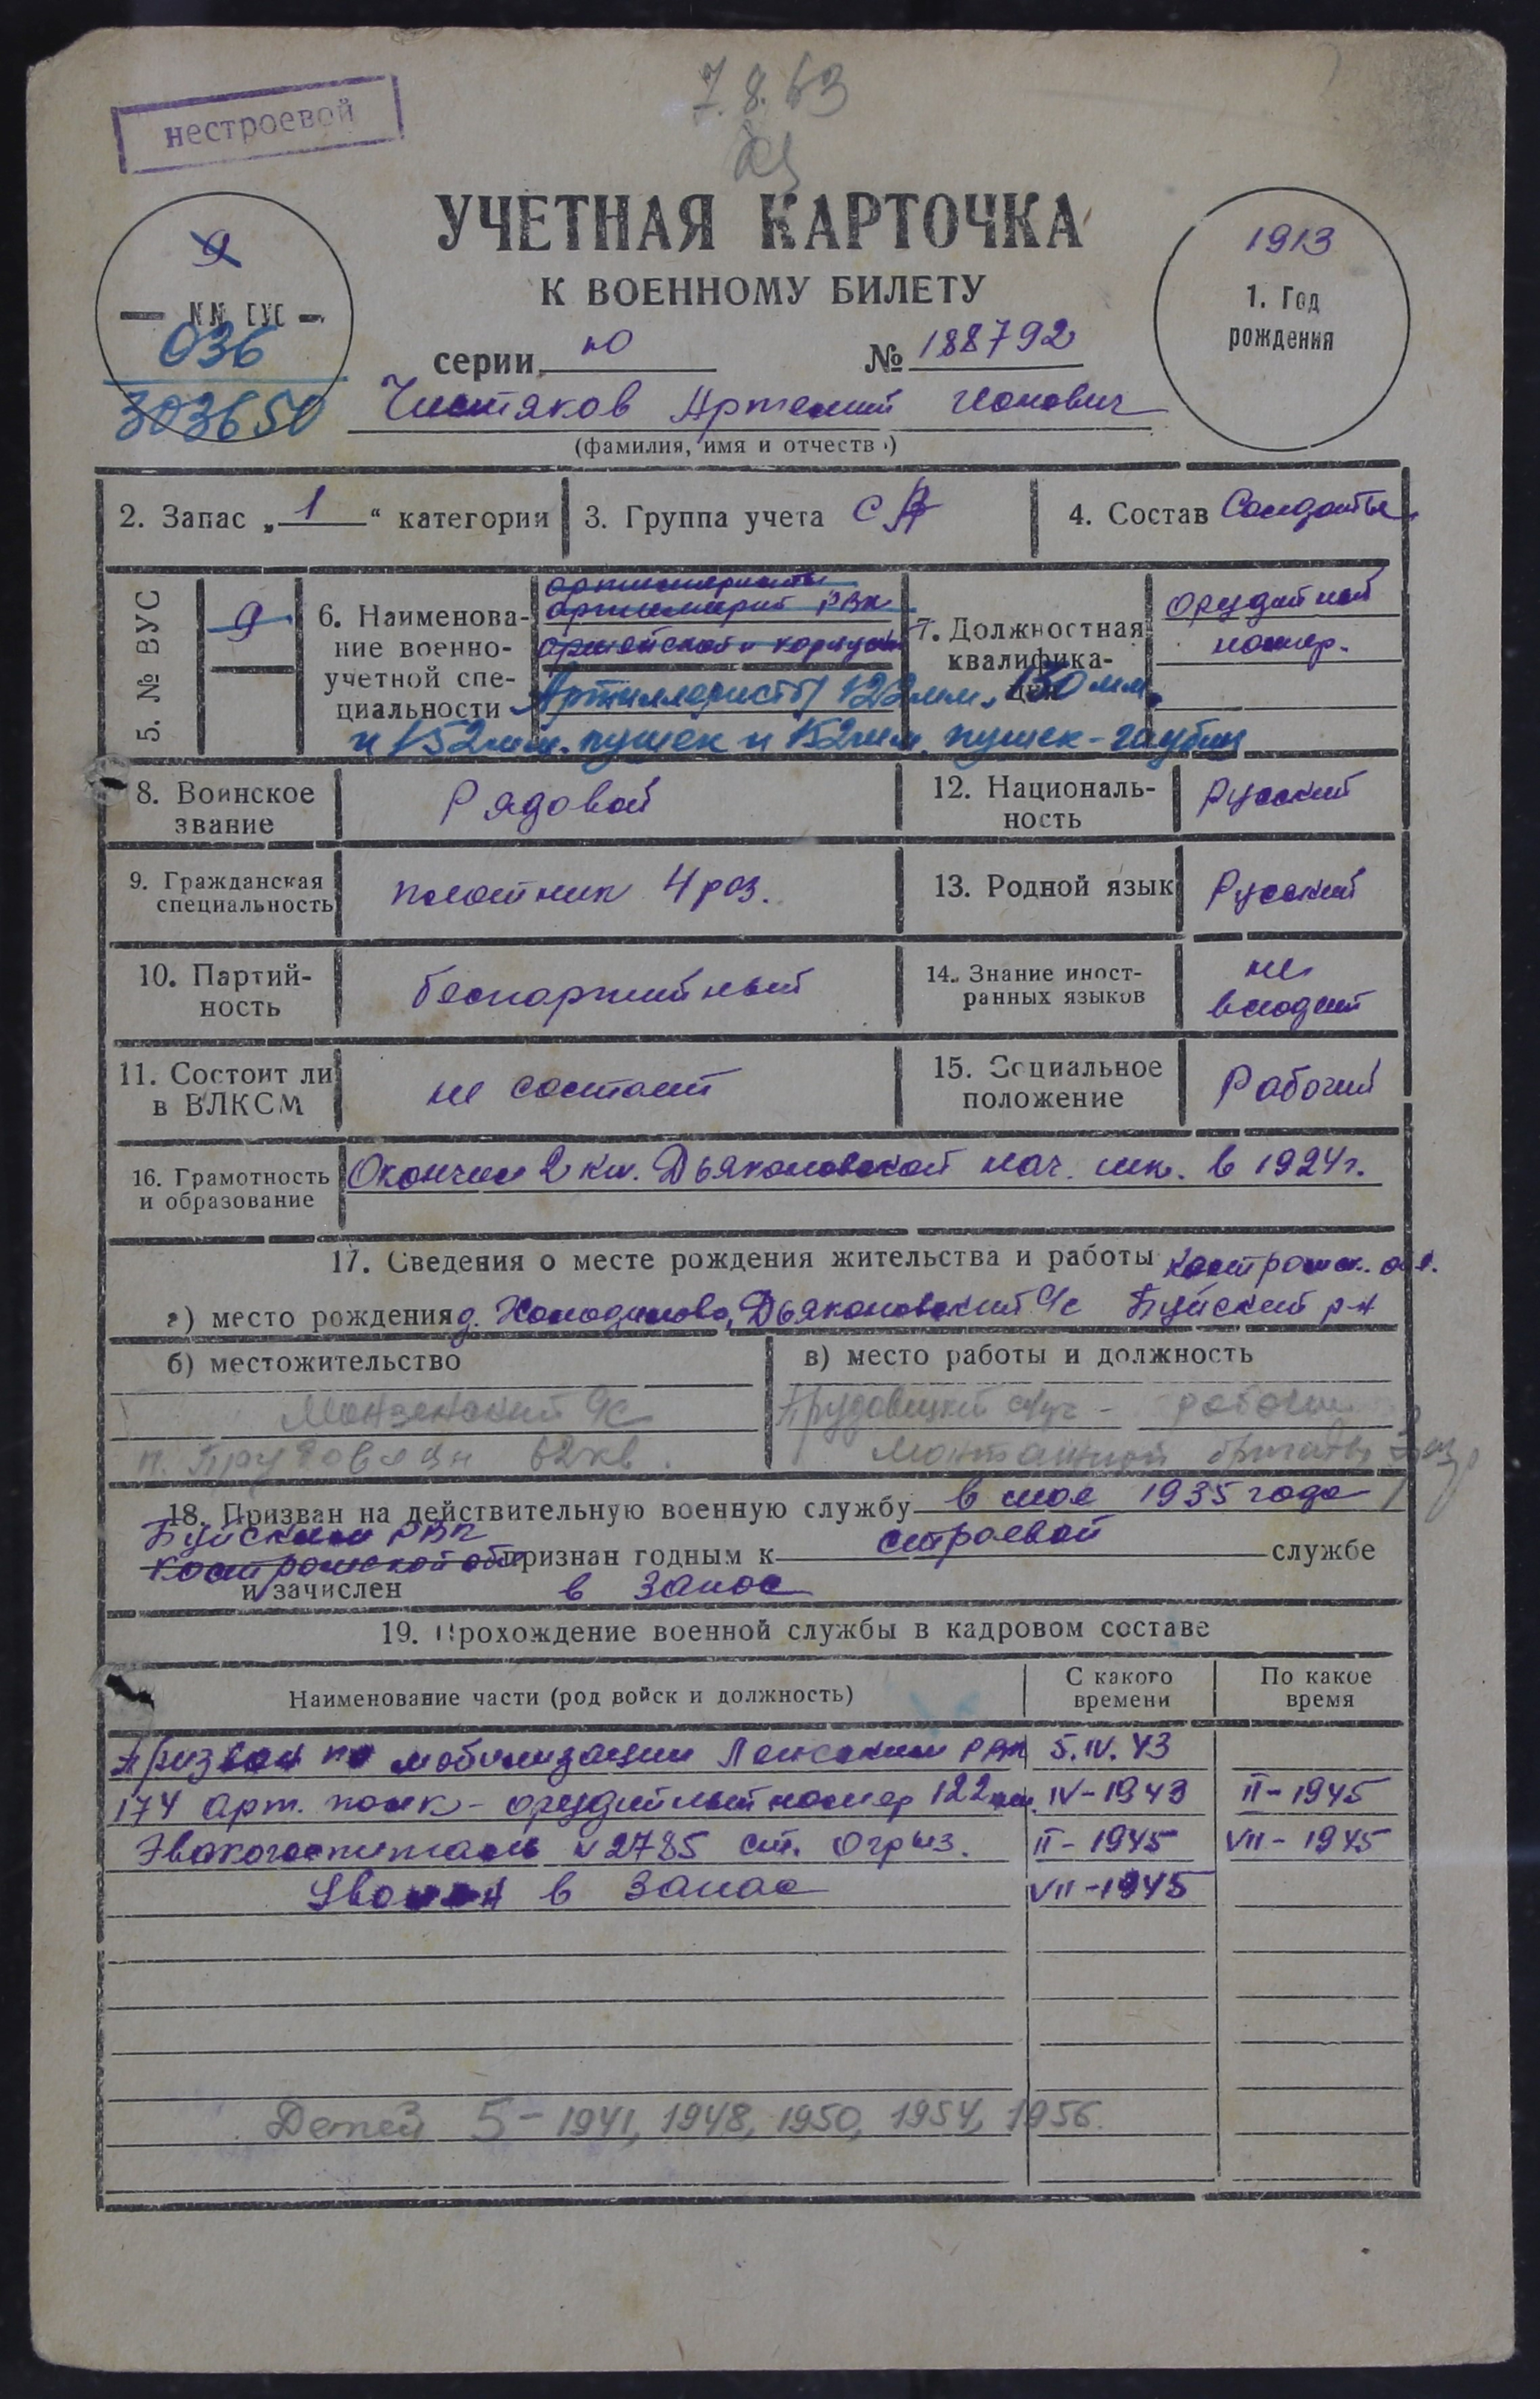 7.8.63
нестроевой
УЧЕТНАЯ КАРТОЧКА
К ВОЕННОМУ БИЛЕТУ
9
— №№ ВУС —
036
303650
1913
1. Год
рождения
серии Ю № 188792
Чистяков Артемий Ионович
(фамилия, имя и отчество)
2. Запас „ 1 “ категории 3. Группа учета СА 4. Состав Солдаты
5. № ВУС 9
6. Наименование военно-учетной специальности
артиллеристы
артиллерии РВК
армейской и корпусн
Артиллеристы 122мм, 130мм.
и 152мм. пушек и 152мм. пушек-гаубиц
7. Должностная квалификация орудийный
номер.
8. Воинское звание Рядовой
12. Национальность Русский
9. Гражданская специальность плотник 4 раз.
13. Родной язык Русский
10. Партийность беспартийный
14. Знание иностранных языков не владеет
11. Состоит ли в ВЛКСМ не состоит
15. Социальное положение Рабочий
16. Грамотность и образование Окончил 2 кл. Дьяконовской нач. шк. в 1924г.
17. Сведения о месте рождения жительства и работы Костромск. обл.
а) место рождения д. Дьяконовский с/с Буйский р-н
б) местожительство
Монзенский с/с
п. Прудовая 62 кв.
в) место работы и должность
рабочий
монтажной бригады
18. Призван на действительную военную службу в мае 1935 года
Буйским РВК
Костромской обл признан годным к строевой службе
и зачислен в запас
19. Прохождение военной службы в кадровом составе
Наименование части (род войск и должность) С какого времени По какое время
Призван по мобилизации Ленским РВК 5.IV.43
174 арт. полк - орудийный номер 122мм. IV-1943 II-1945
Эвакогоспиталь №2785 ст. Агрыз. II-1945 VII-1945
Уволен в запас VII-1945
Детей 5 - 1941, 1948, 1950, 1954, 1956.